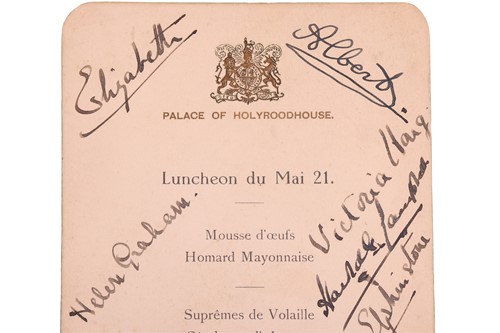 Elizabeth
Albert
PALACE OF HOLYROODHOUSE.
Luncheon du Mai 21.
Victoria Haig
Helen Graham.
Mousse d'œufs
Homard Mayonnaise
Elphinstone
Suprêmes de Volaille